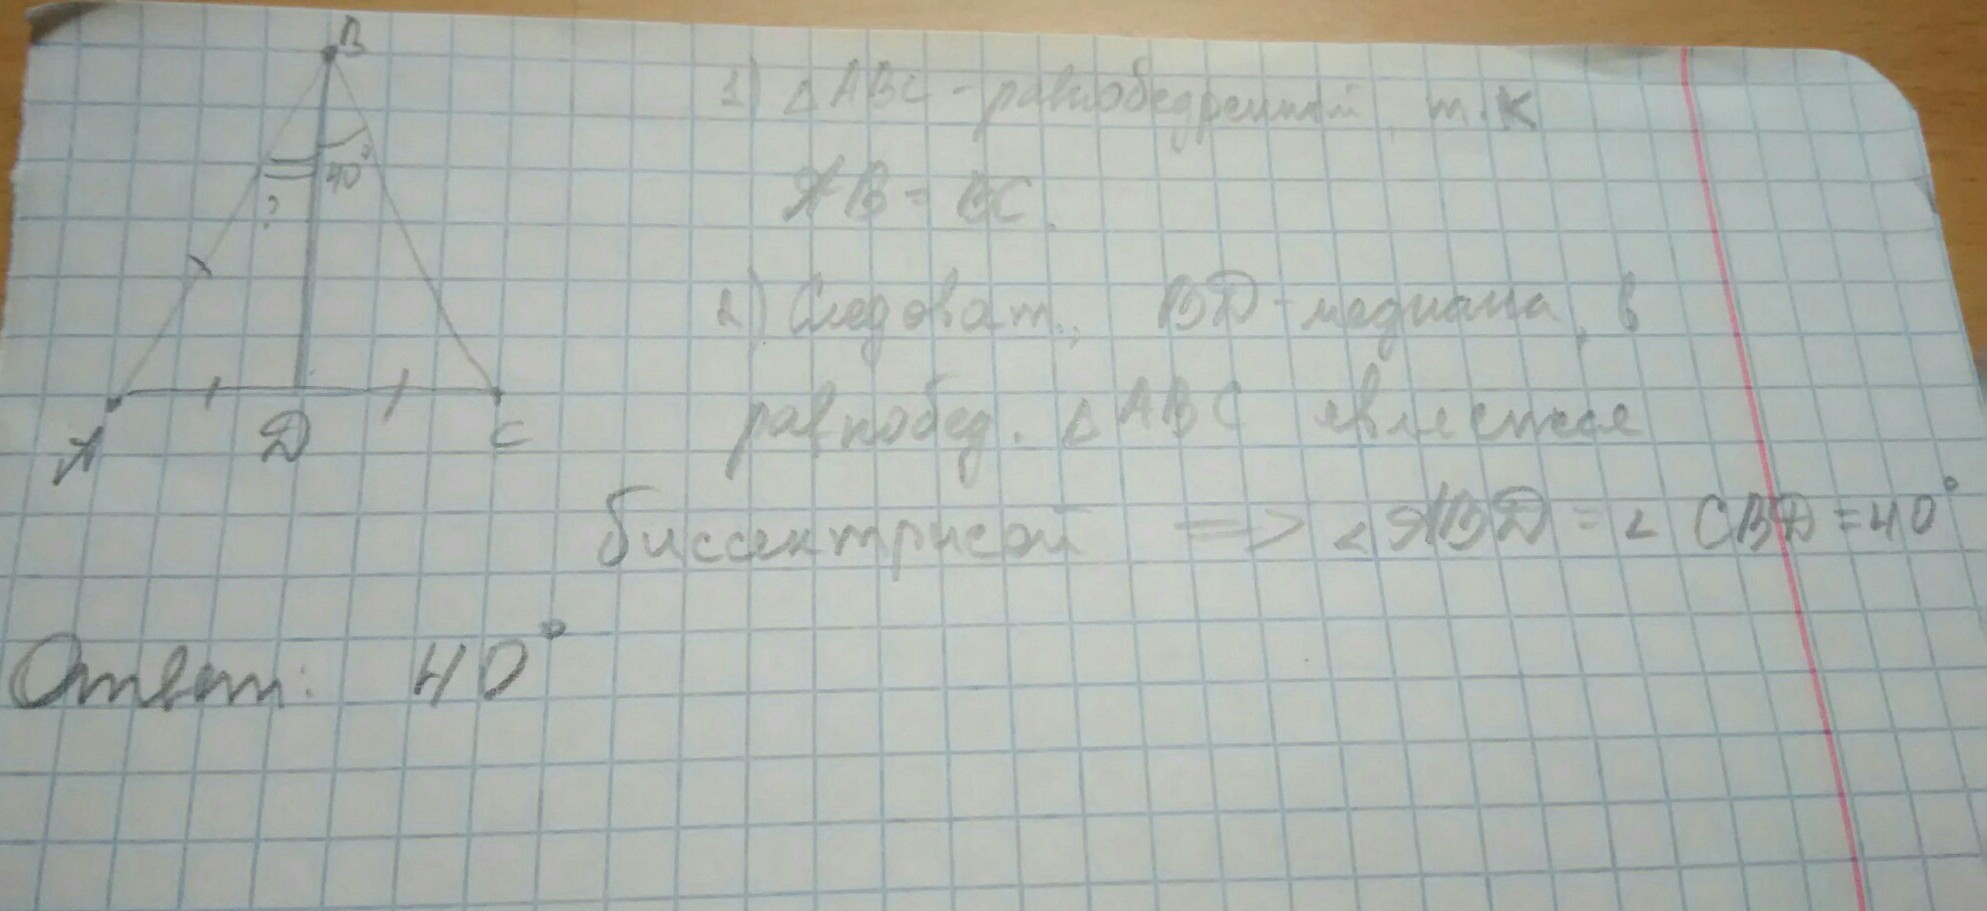 B
40°
?
A
D
C
1) △ABC - равнобедренный, т.к
AB = BC.
2) Следоват., BD - медиана, в
равнобед. △ABC является
биссектрисой => ∠ABD = ∠CBD = 40°
Ответ: 40°